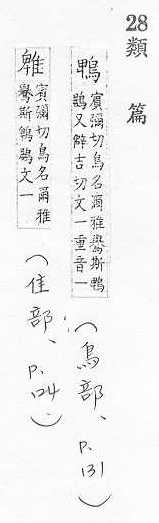 28
類篇
鵯 賓彌切鳥名爾雅鸒斯鵯
鶋又僻吉切文一重音一
(鳥部、P.131)
賓彌切鳥名爾雅
鸒斯鵯鶋文一
(隹部、P.124)